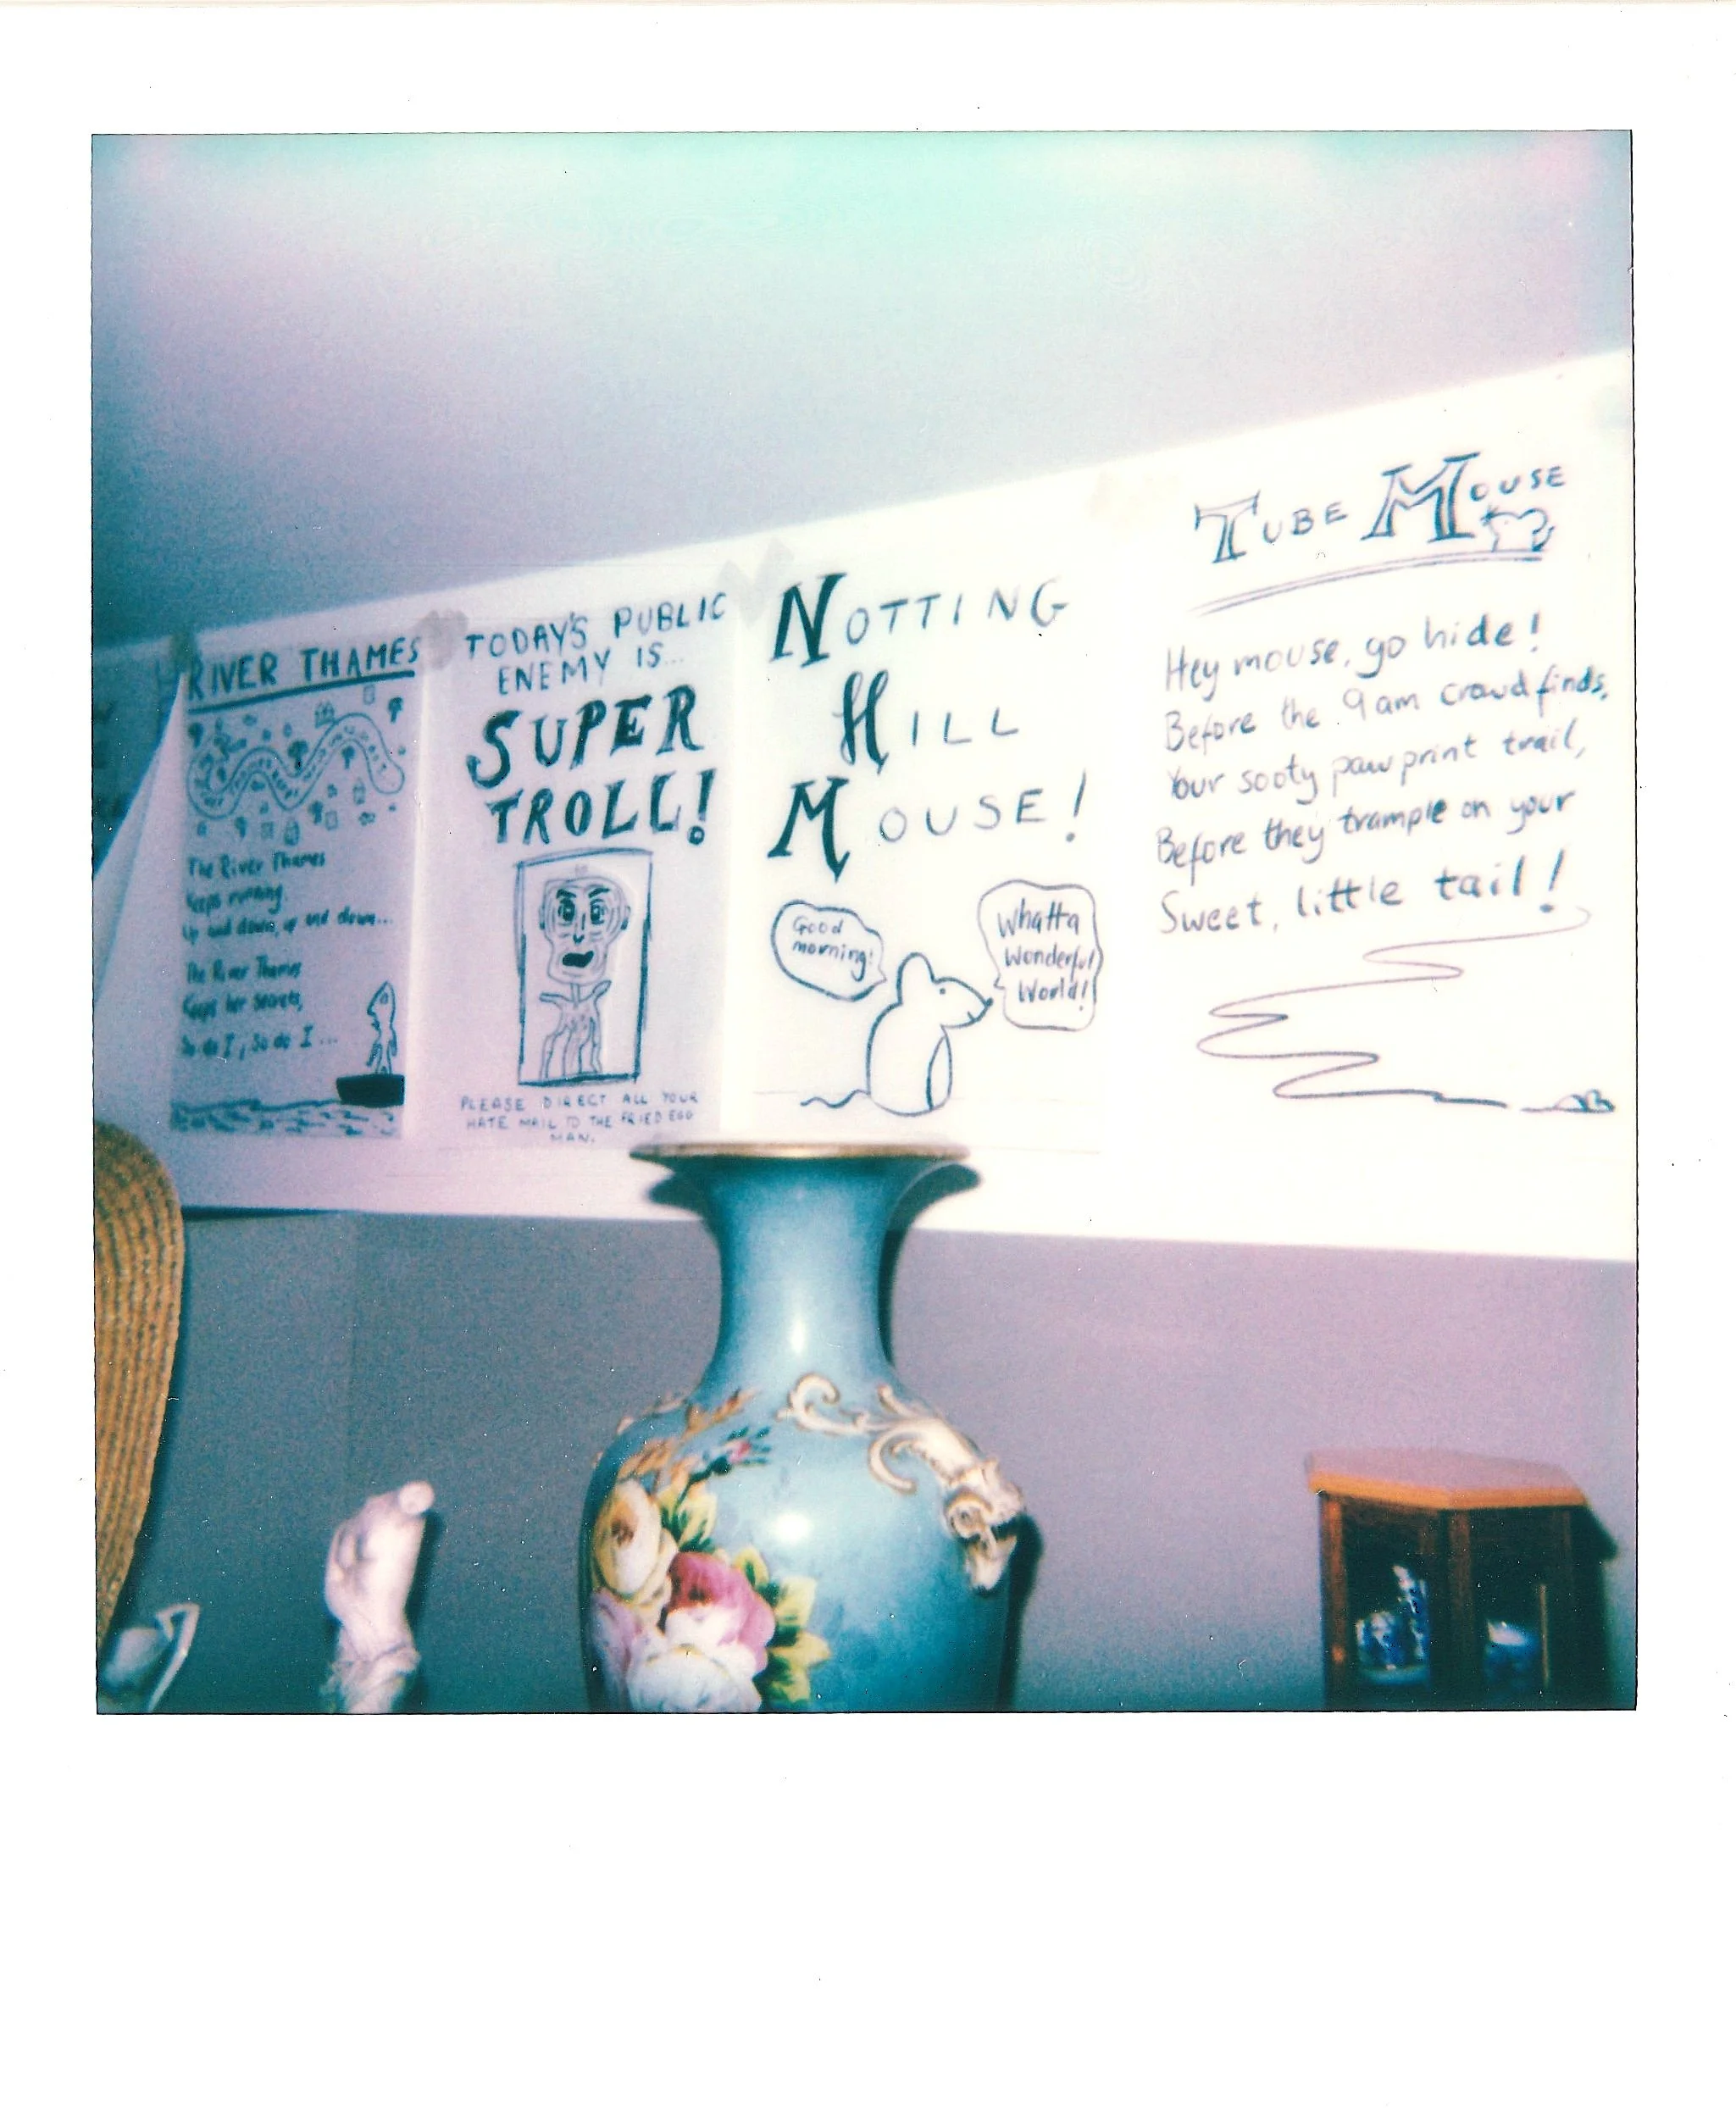 RIVER THAMES
The River Thames
Keeps running,
Up and down, up and down...
The River Thames
Keeps her secrets,
So do I, so do I...
TODAY'S PUBLIC
ENEMY IS...
SUPER
TROLL!
PLEASE DIRECT ALL YOUR
HATE MAIL TO THE FRIED EGG
MAN.
NOTTING
HILL
MOUSE!
Good
morning!
Whatta
Wonderful
World!
TUBE MOUSE
Hey mouse, go hide!
Before the 9am crowd finds,
Your sooty paw print trail,
Before they trample on your
Sweet, little tail!